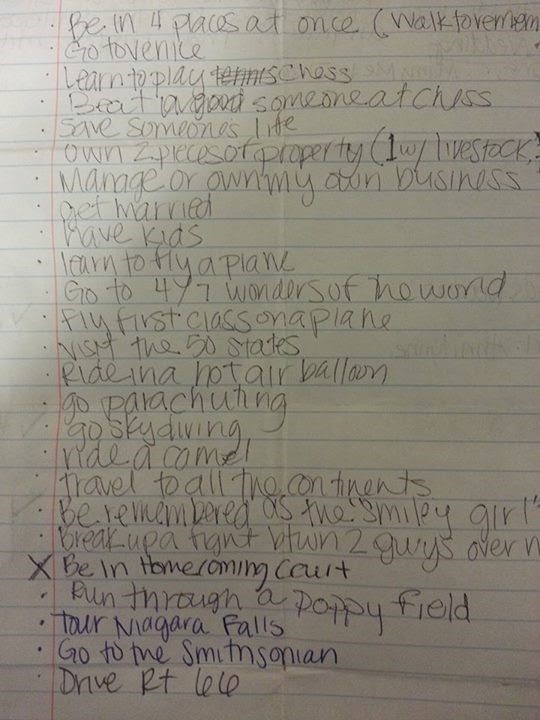 · Be in 4 places at once (Walk to remem
· Go to venice
· Learn to play tennis chess
· Beat someone at chess
· Save someone's life
· own 2 pieces of property (1 w/ livestock,
· Manage or own my own business
· get married
· have kids
· learn to fly a plane
· Go to 4/7 wonders of the world
· fly first class on a plane
· visit the 50 states
· Ride in a hot air balloon
· go parachuting
· go skydiving
· ride a camel
· travel to all the continents
· Be remembered as the "smiley girl"
· Break up a fight btwn 2 guys over
X Be in Homecoming Court
· Run through a poppy field
· Tour Niagara Falls
· Go to the Smithsonian
· Drive Rt 66